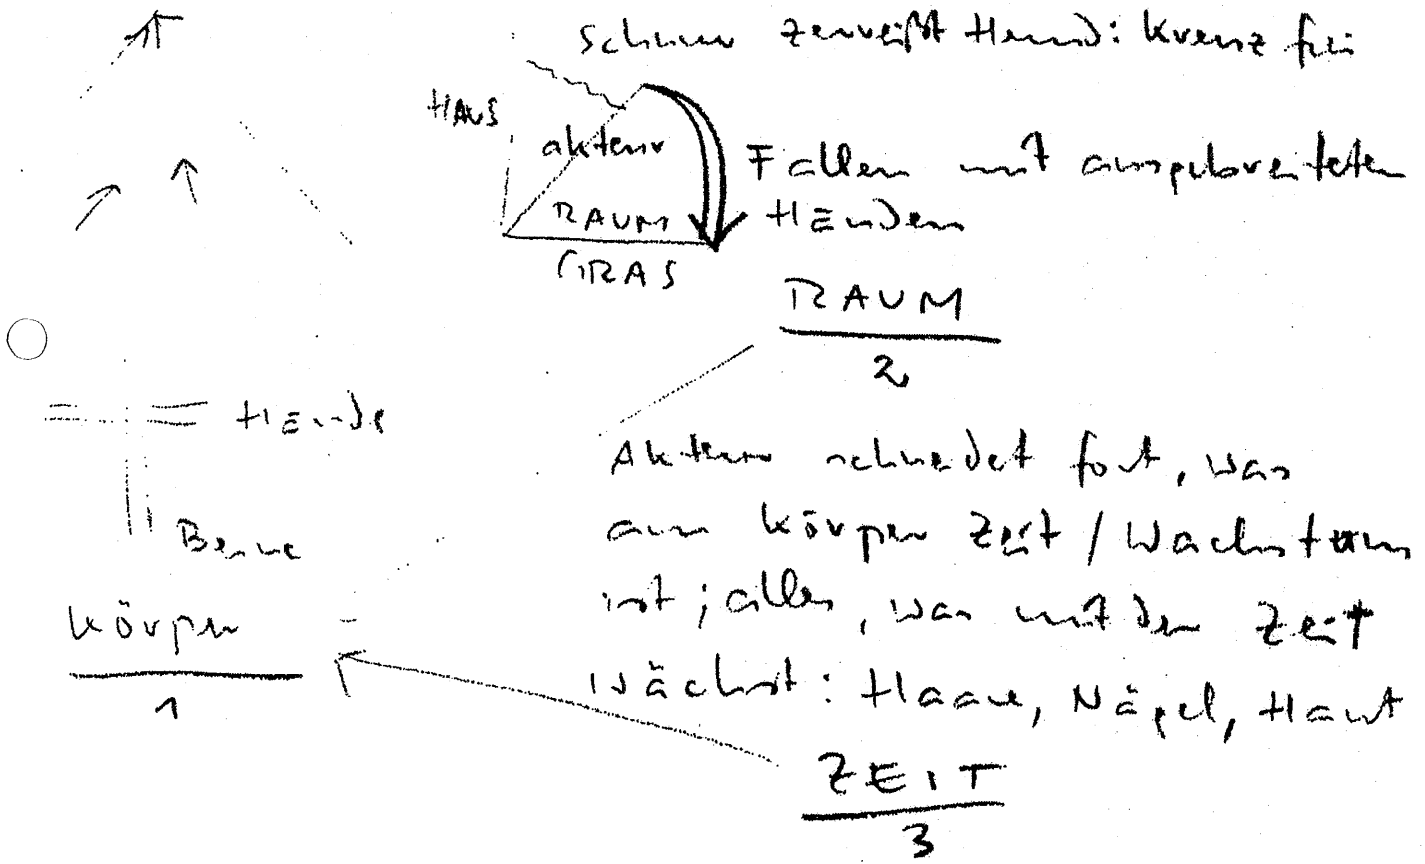 Schnur zerreißt Hemd: Kreuz frei
HAUS
akteur
RAUM
GRAS
Fallen mit ausgebreiteten
HÄnden
RAUM
2
HÄnde
Beine
Körper
1
Akteur schneidet fort, was
am Körper Zeit / Wachstum
ist; alles, was mit der Zeit
wächst: Haare, Nägel, Haut
ZEIT
3